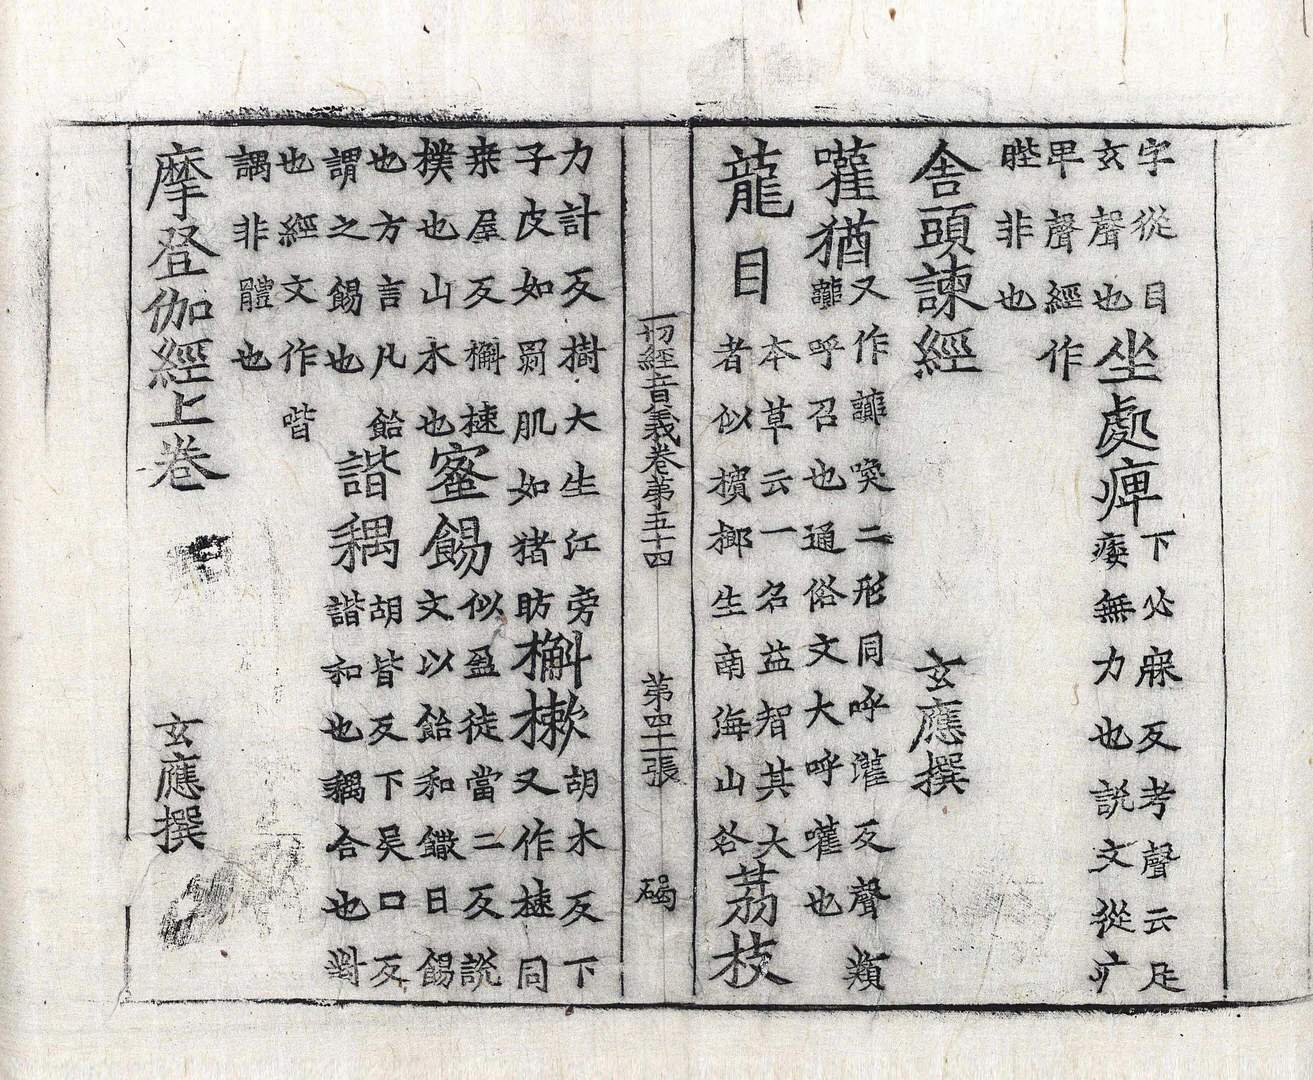 字從目
玄聲也
坐處痺
下必寐反考聲云足
痿無力也說文從疒
甲聲經作
非也
舍頭諫經 玄應撰
嚾猶
又作讙喚二形同呼灌反聲類
讙呼召也通俗文大呼嚾也
龍目
本草云一名益智其大
者似檳榔生南海山谷
荔枝
一切經音義卷第五十四 第四十一張 碣
力計反樹大生江旁
子皮如罽肌如猪肪
槲樕
胡木反下
又作楝同
桒屋反槲楝
樸也山木也
蜜餳
似盈徒當二反說
文以飴和饊曰餳
也方言凡飴
謂之餳也
諧耦
胡皆反下吴口反
諧和也耦合也對
也經文作喈
非體也
摩登伽經上卷 玄應撰